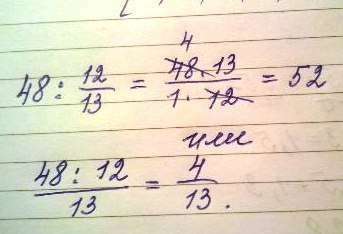 48 : 12/13 = 4 48 · 13 / 1 · 12 = 52
или
48 : 12 / 13 = 4/13.